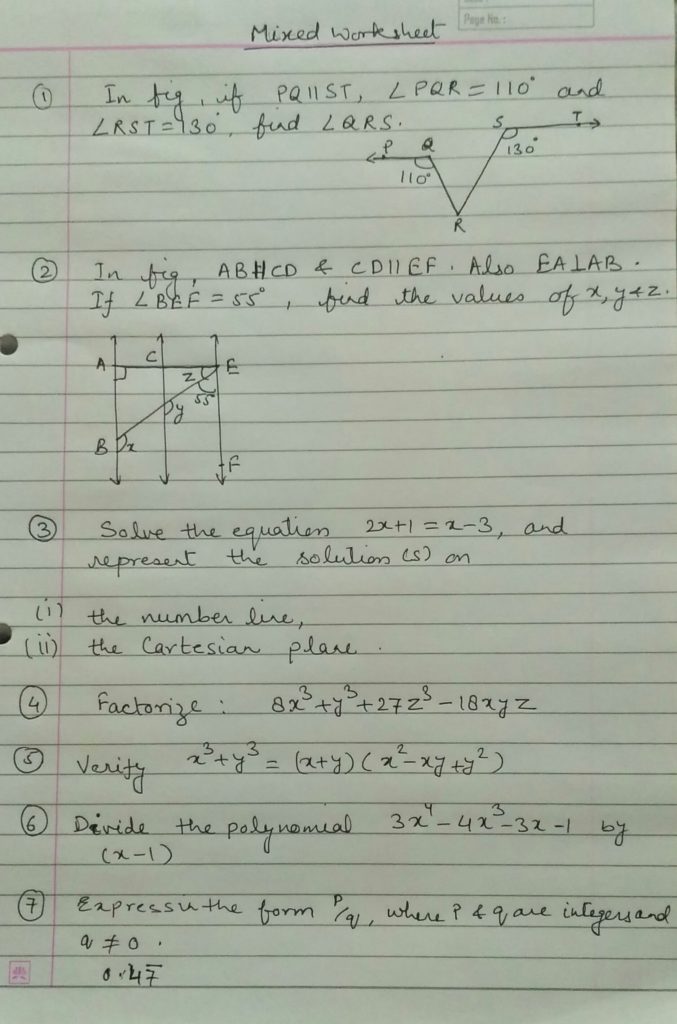 Page No.:
Mixed Worksheet
① In fig, if PQ||ST, ∠PQR = 110° and
∠RST = 130°, find ∠QRS.
P Q S T
110° 130°
R
② In fig, AB||CD & CD||EF. Also EA⊥AB.
If ∠BEF = 55°, find the values of x, y & z.
A C E
z
55°
y
B x
F
③ Solve the equation 2x+1 = x-3, and
represent the solution(s) on
(i) the number line,
(ii) the Cartesian plane.
④ Factorize : 8x³+y³+27z³-18xyz
⑤ Verify x³+y³ = (x+y)(x²-xy+y²)
⑥ Divide the polynomial 3x⁴-4x³-3x-1 by
(x-1)
⑦ Express in the form P/q, where P & q are integers and
q ≠ 0.
0.47̅